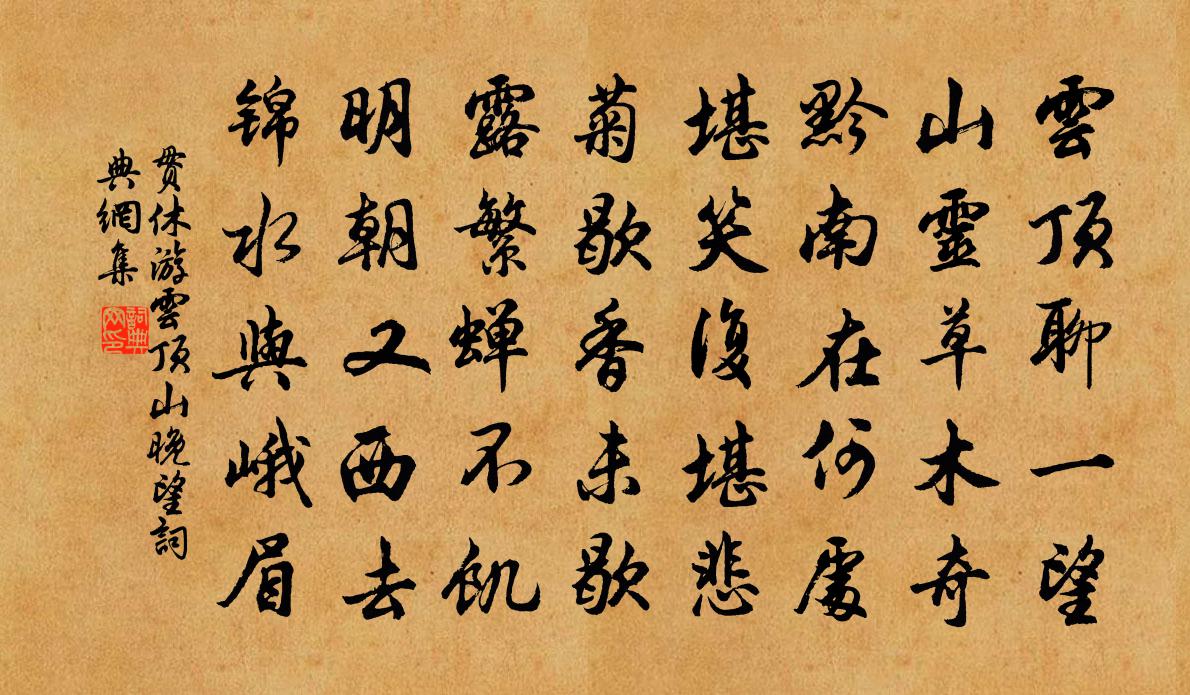 雲頂聊一望
山靈草木奇
黔南在何處
堪笑復堪悲
菊歇香未歇
露繁蝉不飢
明朝又西去
锦水與峨眉
貫休游雲頂山晚望詞
典網集
詞典网印